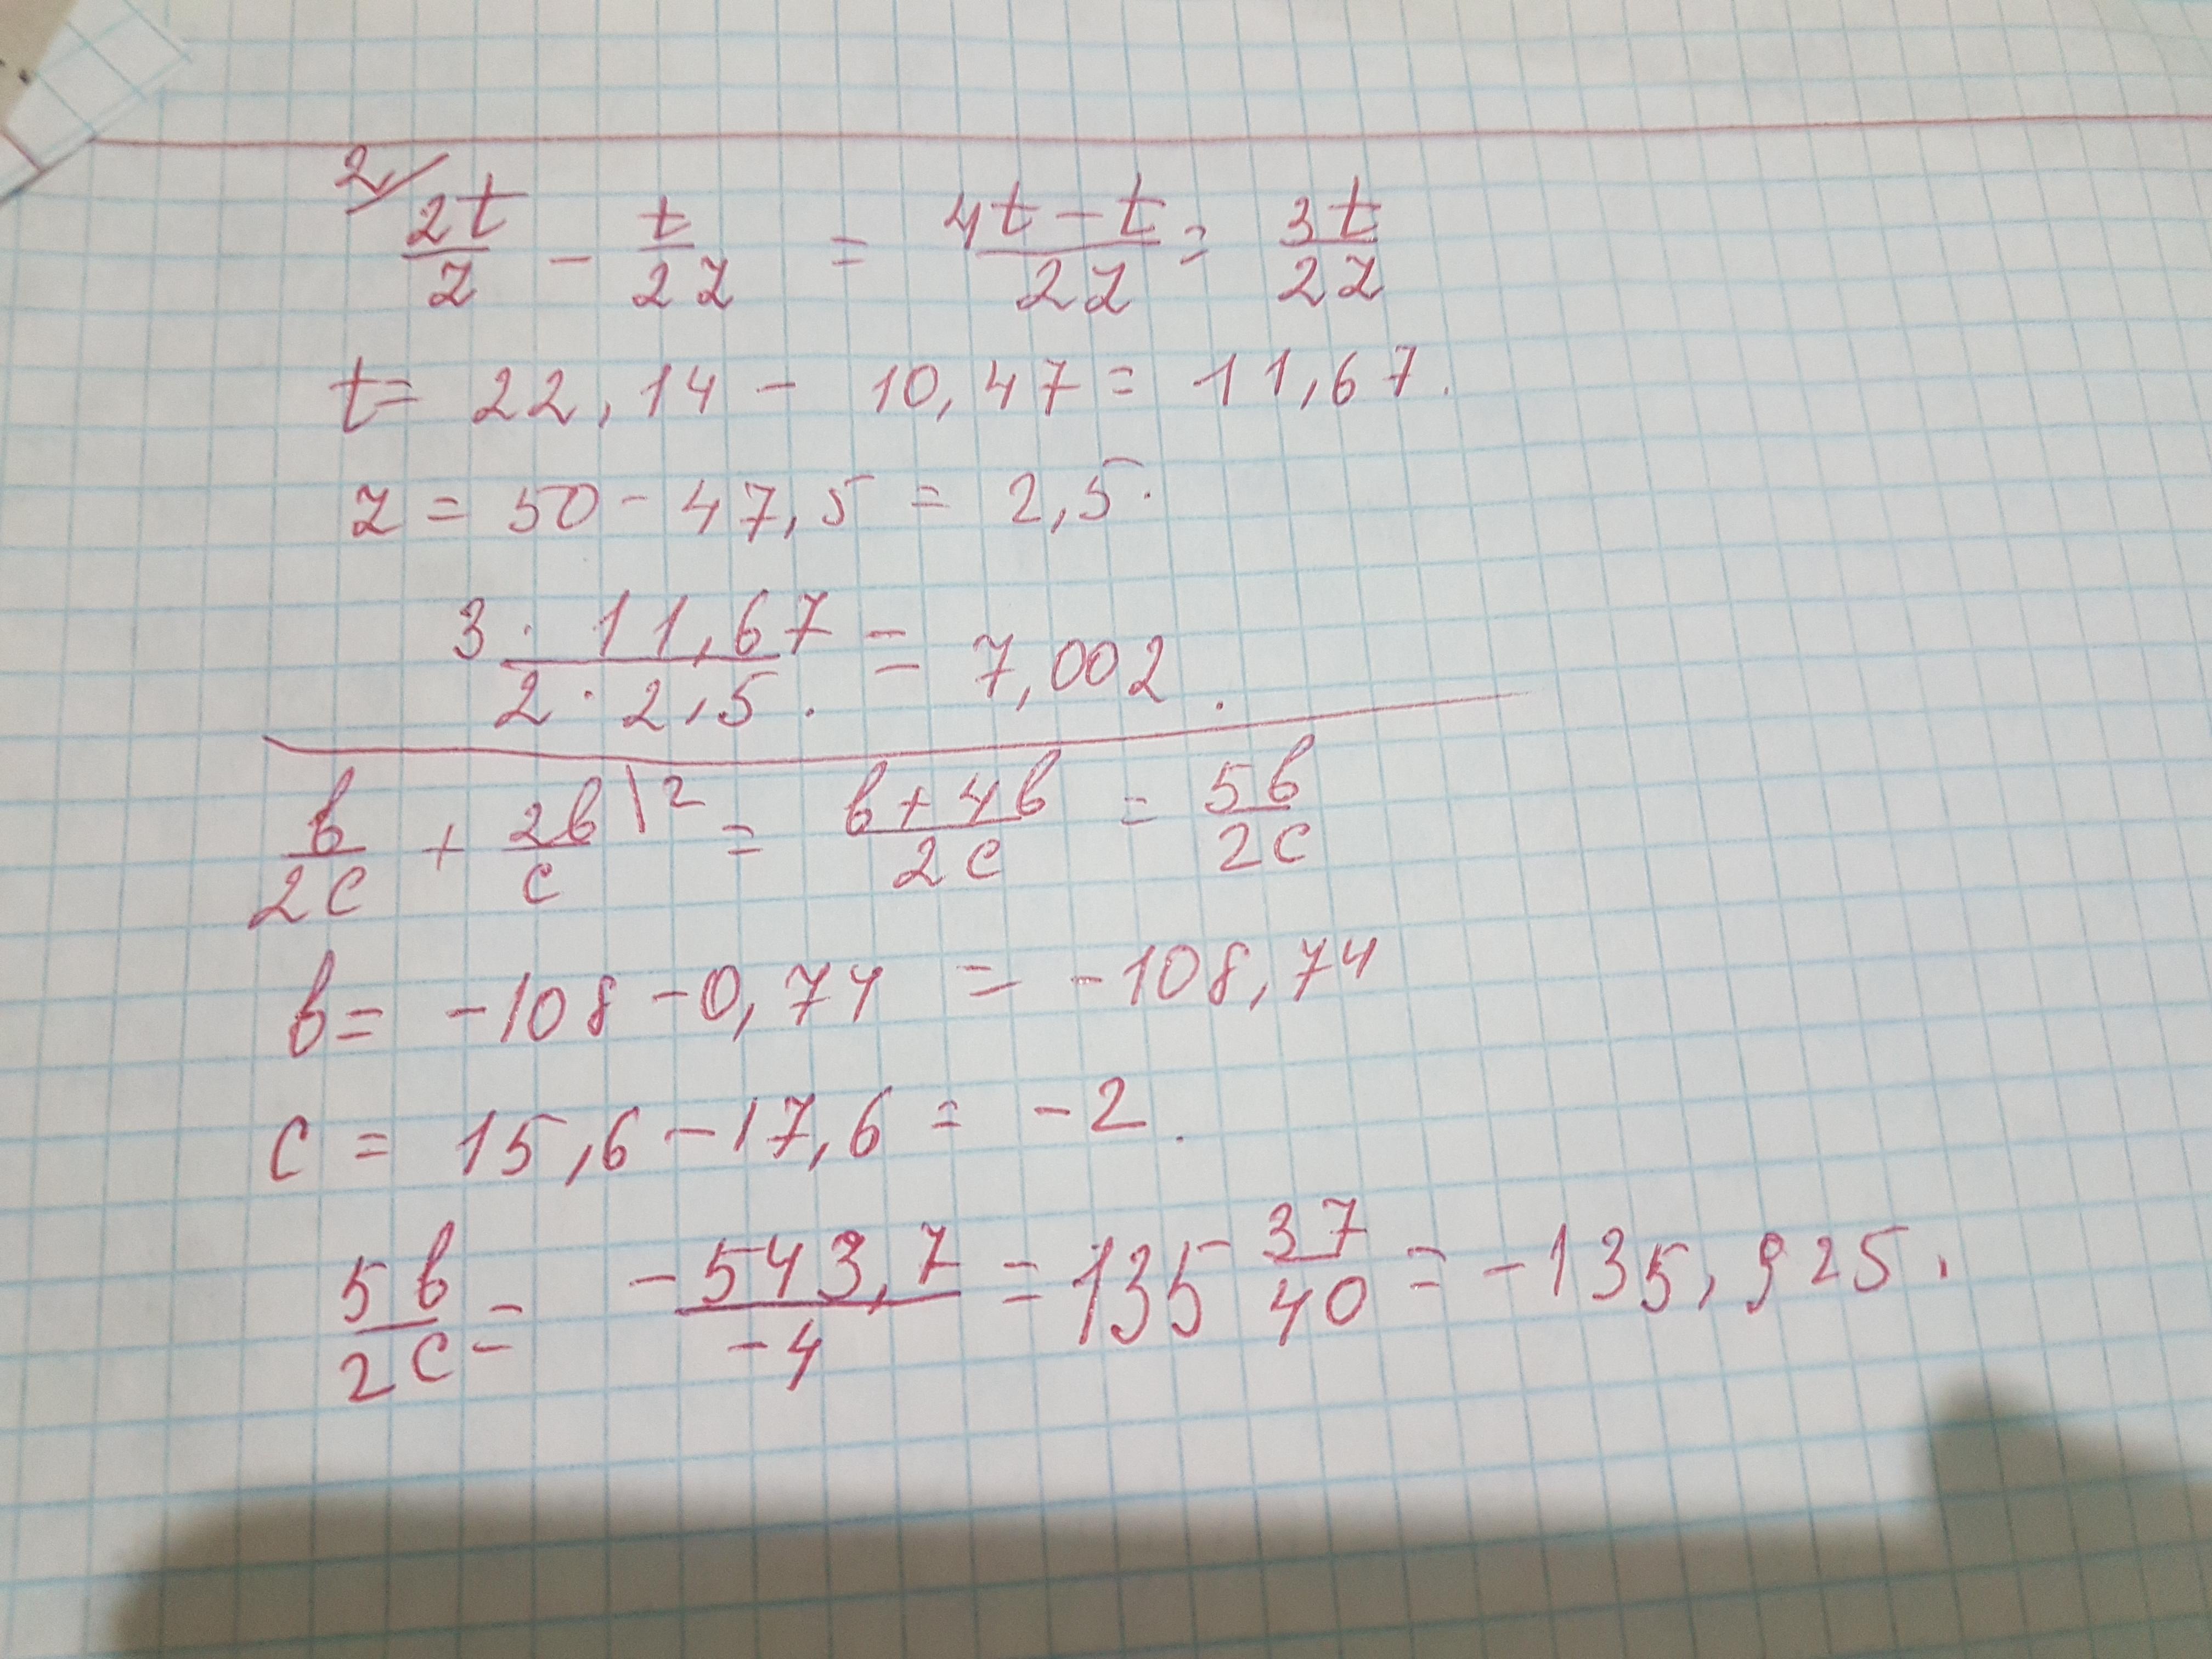 2/ 2t/z - t/2z = 4t-t/2z = 3t/2z
t= 22,14 - 10,47 = 11,67.
z = 50 - 47,5 = 2,5.
3 · 11,67/2 · 2,5. = 7,002.
в/2c + 2в/c \2 = в+4в/2c = 5в/2c
в= -108 -0,74 = -108,74
c = 15,6 -17,6 = -2.
5в/2c = -543,7/-4 = 135 37/40 = -135,925.